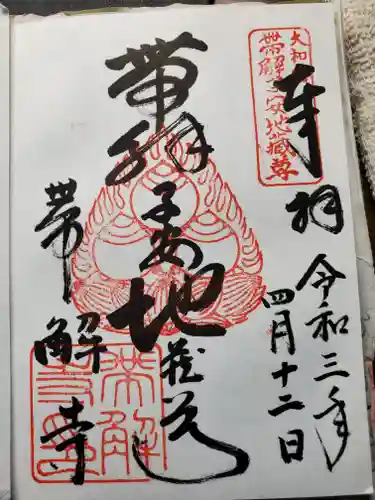 奉拝
令和三年
四月十二日
大和
帯解子安地蔵尊
帯解子安地蔵尊
帯解寺